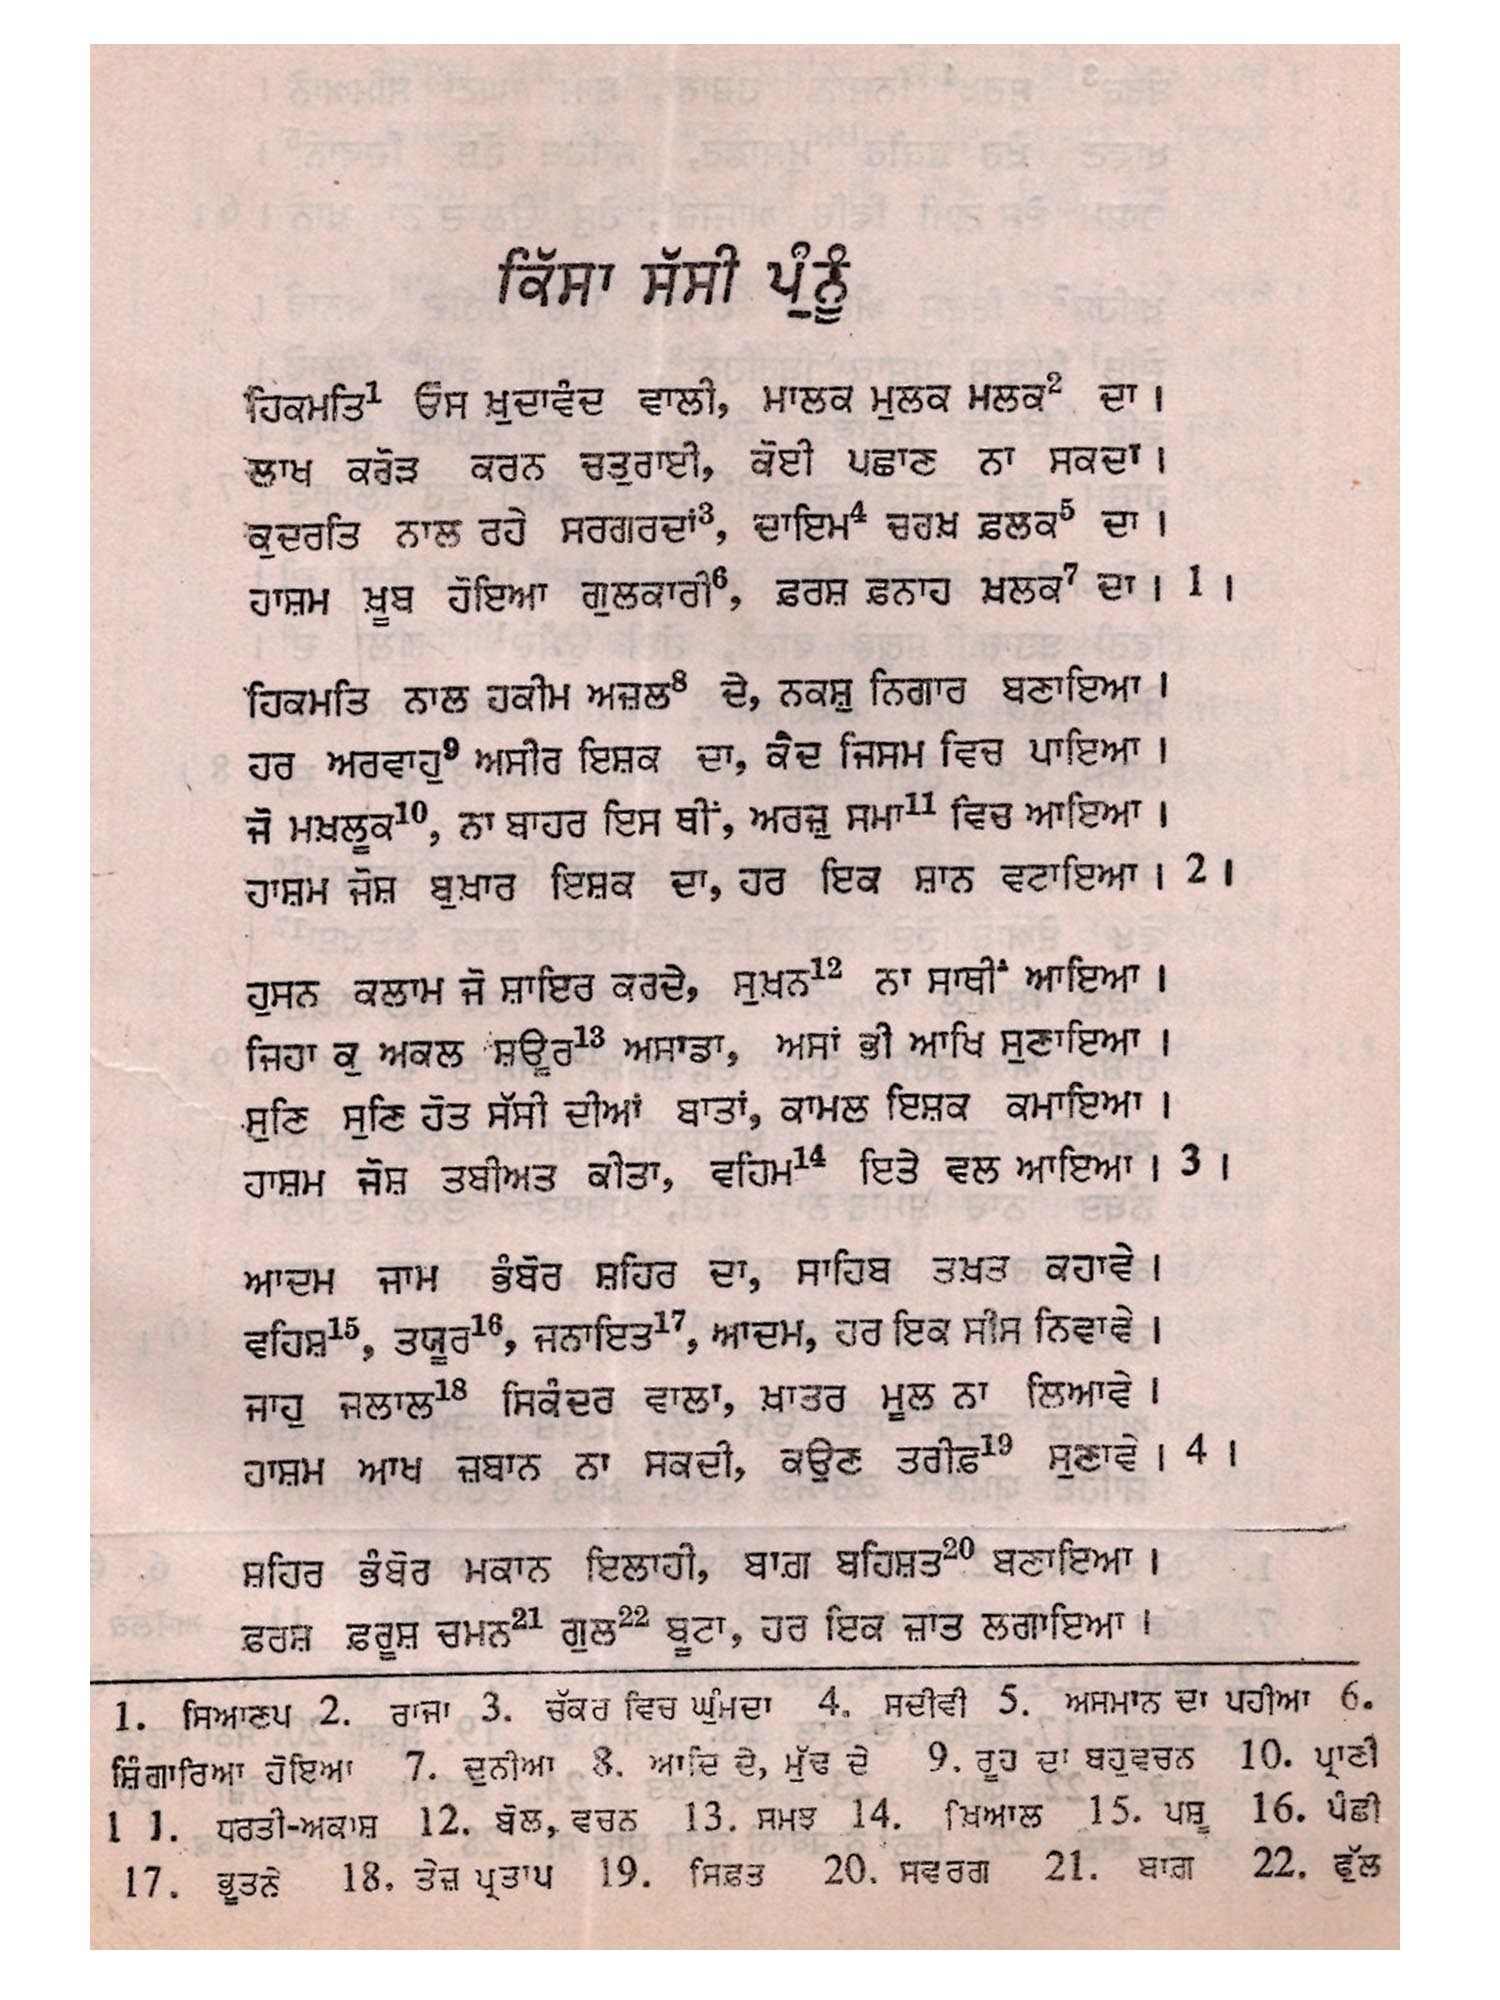 ਕਿੱਸਾ ਸੱਸੀ ਪੁੰਨੂੰ
ਹਿਕਮਤਿ1 ਓਸ ਖ਼ੁਦਾਵੰਦ ਵਾਲੀ, ਮਾਲਕ ਮੁਲਕ ਮਲਕ2 ਦਾ।
ਲਾਖ ਕਰੋੜ ਕਰਨ ਚਤੁਰਾਈ, ਕੋਈ ਪਛਾਣ ਨਾ ਸਕਦਾ।
ਕੁਦਰਤਿ ਨਾਲ ਰਹੇ ਸਰਗਰਦਾਂ3, ਦਾਇਮ4 ਚਰਖ਼ ਫ਼ਲਕ5 ਦਾ।
ਹਾਸ਼ਮ ਖ਼ੂਬ ਹੋਇਆ ਗੁਲਕਾਰੀ6, ਫ਼ਰਸ਼ ਫ਼ਨਾਹ ਖ਼ਲਕ7 ਦਾ। 1।
ਹਿਕਮਤਿ ਨਾਲ ਹਕੀਮ ਅਜ਼ਲ8 ਦੇ, ਨਕਸ਼ੁ ਨਿਗਾਰ ਬਣਾਇਆ।
ਹਰ ਅਰਵਾਹੁ9 ਅਸੀਰ ਇਸ਼ਕ ਦਾ, ਕੈਦ ਜਿਸਮ ਵਿਚ ਪਾਇਆ।
ਜੋ ਮਖ਼ਲੂਕ10, ਨਾ ਬਾਹਰ ਇਸ ਥੀਂ, ਅਰਜ਼ੁ ਸਮਾ11 ਵਿਚ ਆਇਆ।
ਹਾਸ਼ਮ ਜੋਸ਼ ਬੁਖ਼ਾਰ ਇਸ਼ਕ ਦਾ, ਹਰ ਇਕ ਸ਼ਾਨ ਵਟਾਇਆ। 2।
ਹੁਸਨ ਕਲਾਮ ਜੋ ਸ਼ਾਇਰ ਕਰਦੇ, ਸੁਖ਼ਨ12 ਨਾ ਸਾਥੀਂ ਆਇਆ।
ਜਿਹਾ ਕੁ ਅਕਲ ਸ਼ਊਰ13 ਅਸਾਡਾ, ਅਸਾਂ ਭੀ ਆਖਿ ਸੁਣਾਇਆ।
ਸੁਣਿ ਸੁਣਿ ਹੋਤ ਸੱਸੀ ਦੀਆਂ ਬਾਤਾਂ, ਕਾਮਲ ਇਸ਼ਕ ਕਮਾਇਆ।
ਹਾਸ਼ਮ ਜੋਸ਼ ਤਬੀਅਤ ਕੀਤਾ, ਵਹਿਮ14 ਇਤੇ ਵਲ ਆਇਆ। 3।
ਆਦਮ ਜਾਮ ਭੰਬੋਰ ਸ਼ਹਿਰ ਦਾ, ਸਾਹਿਬ ਤਖ਼ਤ ਕਹਾਵੇ।
ਵਹਿਸ਼15, ਤਯੂਰ16, ਜਨਾਇਤ17, ਆਦਮ, ਹਰ ਇਕ ਸੀਸ ਨਿਵਾਵੇ।
ਜਾਹੁ ਜਲਾਲ18 ਸਿਕੰਦਰ ਵਾਲਾ, ਖ਼ਾਤਰ ਮੂਲ ਨਾ ਲਿਆਵੇ।
ਹਾਸ਼ਮ ਆਖ ਜ਼ਬਾਨ ਨਾ ਸਕਦੀ, ਕਉਣ ਤਰੀਫ਼19 ਸੁਣਾਵੇ। 4।
ਸ਼ਹਿਰ ਭੰਬੋਰ ਮਕਾਨ ਇਲਾਹੀ, ਬਾਗ਼ ਬਹਿਸ਼ਤ20 ਬਣਾਇਆ।
ਫ਼ਰਸ਼ ਫ਼ਰੂਸ਼ ਚਮਨ21 ਗੁਲ22 ਬੂਟਾ, ਹਰ ਇਕ ਜ਼ਾਤ ਲਗਾਇਆ।
1. ਸਿਆਣਪ 2. ਰਾਜਾ 3. ਚੱਕਰ ਵਿਚ ਘੁੰਮਦਾ 4. ਸਦੀਵੀ 5. ਅਸਮਾਨ ਦਾ ਪਹੀਆ 6.
ਸ਼ਿੰਗਾਰਿਆ ਹੋਇਆ 7. ਦੁਨੀਆ 8. ਆਦਿ ਦੇ, ਮੁੱਢ ਦੇ 9. ਰੂਹ ਦਾ ਬਹੁਵਚਨ 10. ਪ੍ਰਾਣੀ
11. ਧਰਤੀ-ਅਕਾਸ਼ 12. ਬੋਲ, ਵਚਨ 13. ਸਮਝ 14. ਖ਼ਿਆਲ 15. ਪਸ਼ੂ 16. ਪੰਛੀ
17. ਭੂਤਨੇ 18. ਤੇਜ਼ ਪ੍ਰਤਾਪ 19. ਸਿਫ਼ਤ 20. ਸਵਰਗ 21. ਬਾਗ਼ 22. ਫੁੱਲ